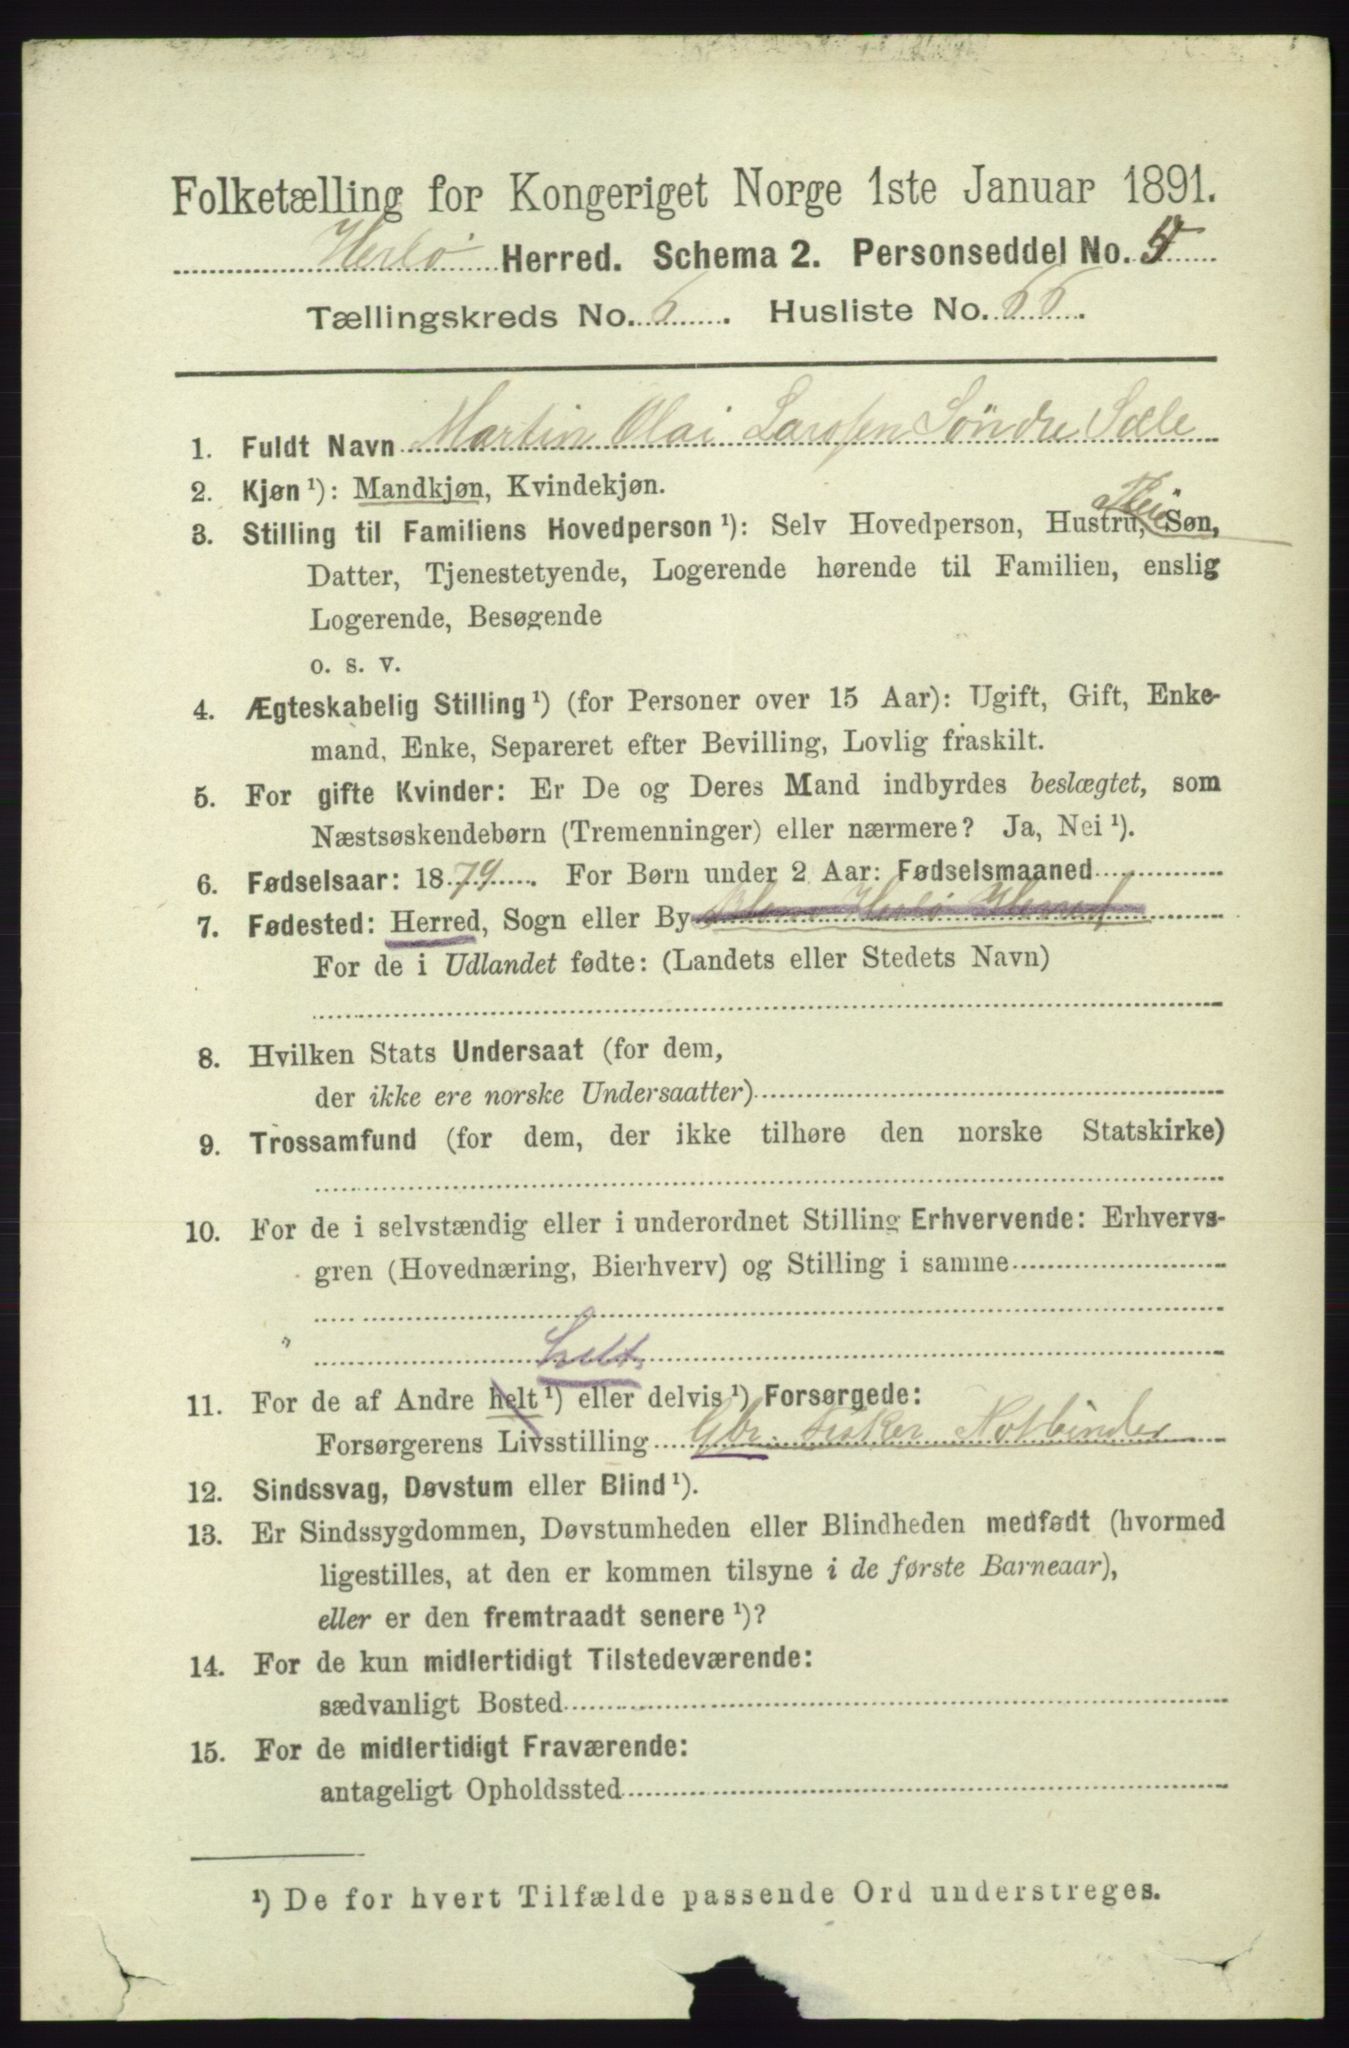 Folketælling for Kongeriget Norge 1ste Januar 1891.
Herlø Herred. Schema 2. Personseddel No. 5
Tællingskreds No. 6. Husliste No. 66.
1. Fuldt Navn Martin Olai Larssen Söndre Sæle
2. Kjøn ¹): Mandkjøn, Kvindekjøn.
3. Stilling til Familiens Hovedperson ¹): Selv Hovedperson, Hustru, Søn,
Datter, Tjenestetyende, Logerende hørende til Familien, enslig
Logerende, Besøgende
o. s. v.
4. Ægteskabelig Stilling ¹) (for Personer over 15 Aar): Ugift, Gift, Enke-
mand, Enke, Separeret efter Bevilling, Lovlig fraskilt.
5. For gifte Kvinder: Er De og Deres Mand indbyrdes beslægtet, som
Næstsøskendebørn (Tremenninger) eller nærmere? Ja, Nei ¹).
6. Fødselsaar: 1879. For Børn under 2 Aar: Fødselsmaaned
7. Fødested: Herred, Sogn eller By Herlø Herred
For de i Udlandet fødte: (Landets eller Stedets Navn)
8. Hvilken Stats Undersaat (for dem,
der ikke ere norske Undersaatter)
9. Trossamfund (for dem, der ikke tilhøre den norske Statskirke)
10. For de i selvstændig eller i underordnet Stilling Erhvervende: Erhvervs-
gren (Hovednæring, Bierhverv) og Stilling i samme
11. For de af Andre helt ¹) eller delvis ¹) Forsørgede:
Forsørgerens Livsstilling Gbr. Fisker Notbinder
12. Sindssvag, Døvstum eller Blind ¹).
13. Er Sindssygdommen, Døvstumheden eller Blindheden medfødt (hvormed
ligestilles, at den er kommen tilsyne i de første Barneaar),
eller er den fremtraadt senere ¹)?
14. For de kun midlertidigt Tilstedeværende:
sædvanligt Bosted
15. For de midlertidigt Fraværende:
antageligt Opholdssted
¹) De for hvert Tilfælde passende Ord understreges.